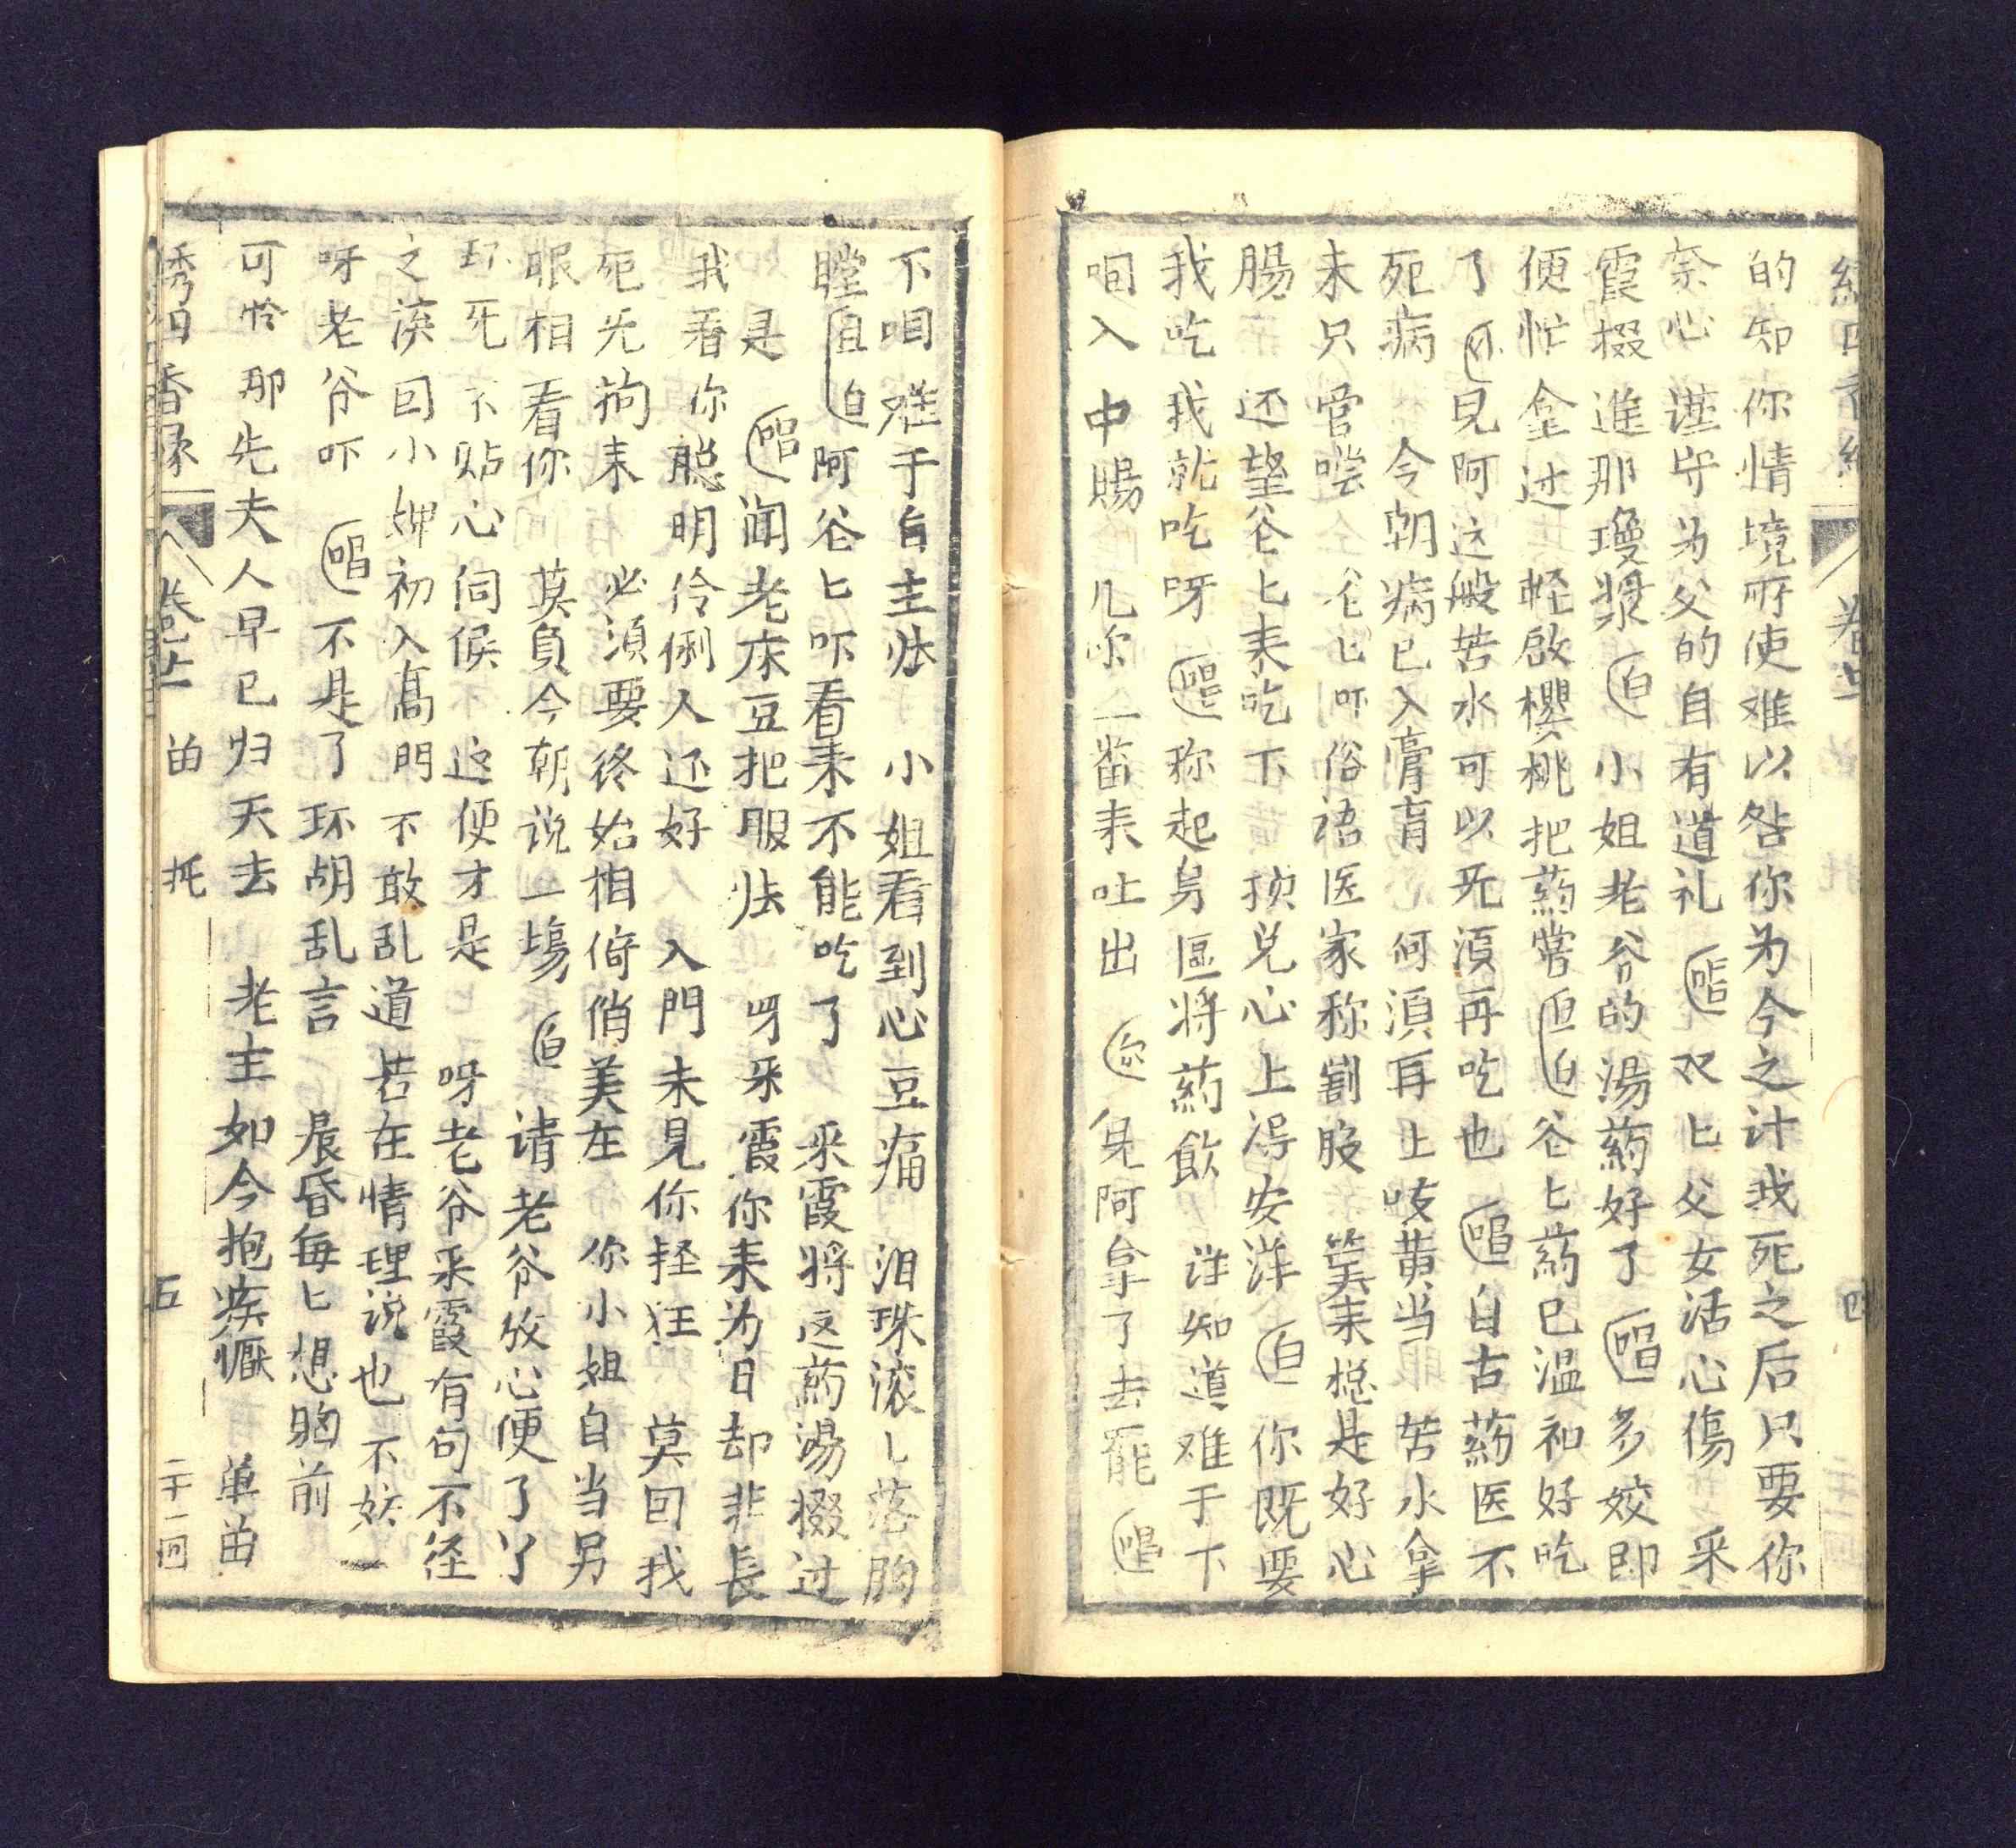 卷 四
的知你情境所使难以咎你为今之计我死之后只要你
奈心 谨守为父的自有道礼 唱 双匕父女活心傷 采
霞掇進那瓊漿 白 小姐老爷的湯葯好了 唱 多姣即
便忙拿过 軽啟櫻桃把葯嘗 旦白 爷匕葯已温和好吃
了 你 見阿这般苦水可以死湏再吃也 唱 自古葯医不
死病 今朝病已入膏肓 何湏再上黄当 苦水拿
未只管嚐 爷匕吓俗语医家称割股 筭来総是好心
腸 还望爷匕来吃下 心上得安洋 白 你既要
我吃我就吃呀 唱 称起身區将葯飲 谁知道难于下
咽入中賜 几 一畨来吐出 你 見阿拿了去罷 唱
下咽难于自主怅 小姐看到心豆痛 泪珠滚匕落胸
膛 旦白 阿爷匕吓看来不能吃了 采霞将这葯湯掇过
是 唱 闻老床豆把眼怅 呀采霞你来为日却非長
我看你聪明伶俐人还好 入門未見你軽狂 莫回我
死先拘束 必湏要终始相倚俏美在 你小姐自当另
眼相看你 莫負今朝说一塲 白 请老爷放心便了丫
环死不贴心伺候 这便才是 呀老爷采霞有句不径
之談回小婢初入高門不敢乱道若在情理说也不妨一
呀老爷吓 唱 不是了环胡乱言 晨昏每匕想胸前
可怜那先夫人早已归天去 老主如今抱疾懨 单曲
绣四香緣 卷 笛 托 五 二十一回